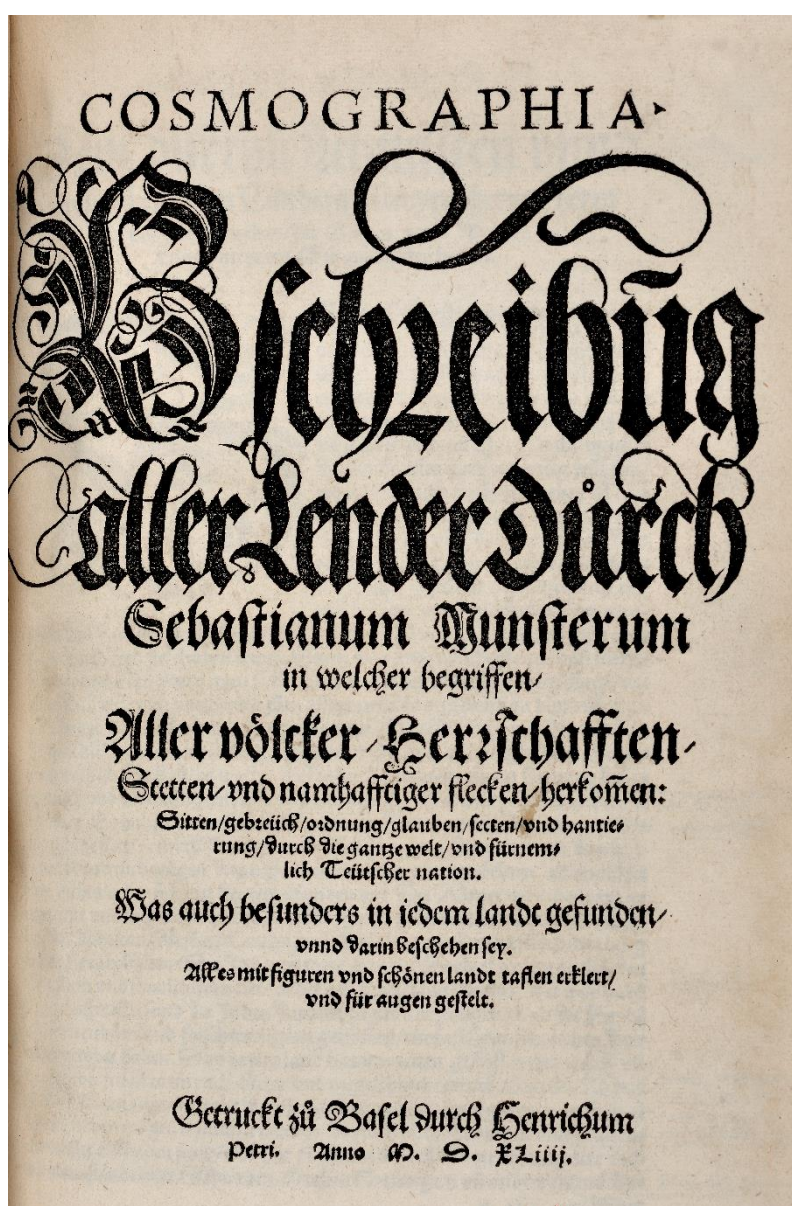 COSMOGRAPHIA.
Bschreibūg
aller Lender durch
Sebastianum Munsterum
in welcher begriffen/
Aller völcker/ Herrschafften/
Stetten/ vnd namhafftiger flecken/ herkom̄en:
Sitten/ gebreüch/ ordnung/ glauben/ secten/ vnd hantie⸗
rung/ durch die gantze welt/ vnd fürnem⸗
lich Teütscher nation.
Was auch besunders in iedem landt gefunden/
vnnd darin beschehen sey.
Alles mit figuren vnd schönen landt taflen erklert/
vnd für augen gestelt.
Getruckt zů Basel durch Henrichum
Petri. Anno M. D. XLiiij.